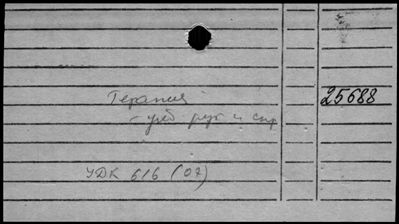 Терапия 25688
- учеб рук и спр
УДК 616 (07)